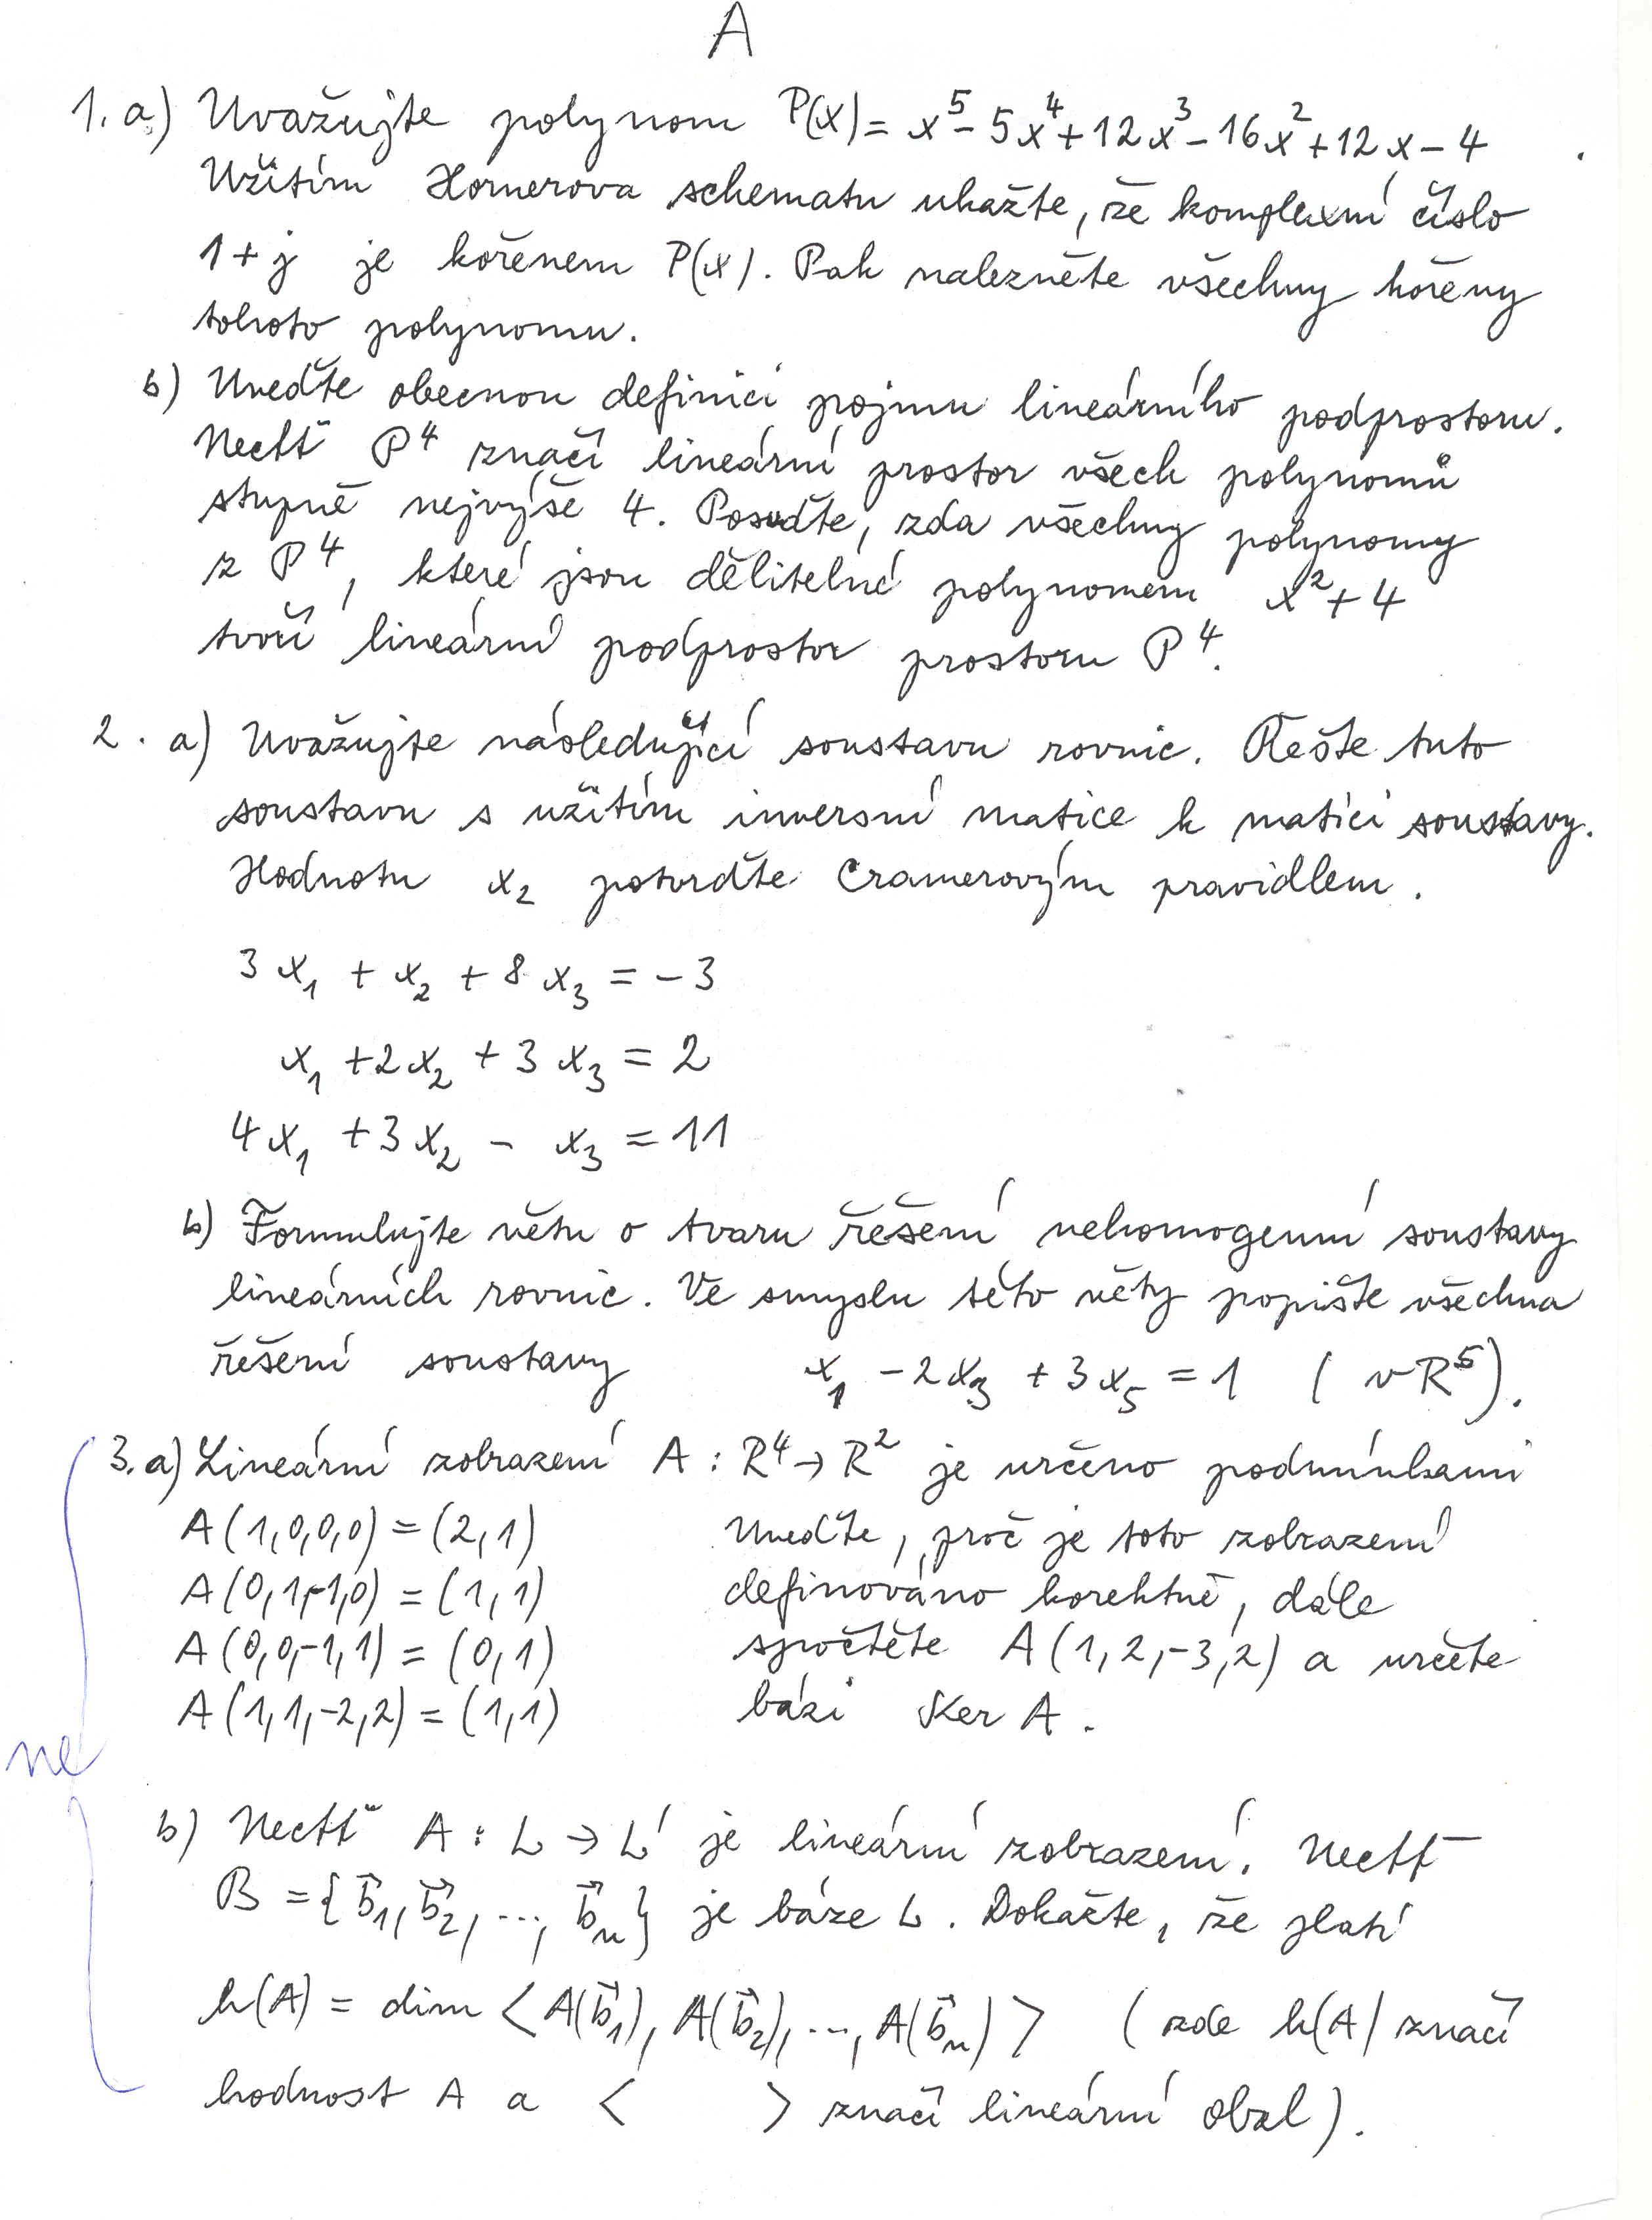 A
1. a) Uvažujte polynom P(x) = x⁵ - 5x⁴ + 12x³ - 16x² + 12x - 4
Užitím Hornerova schematu ukažte, že komplexní číslo
1 + j je kořenem P(x). Pak nalezněte všechny kořeny
tohoto polynomu.
b) Uveďte obecnou definici pojmu lineárního podprostoru.
Nechť P⁴ značí lineární prostor všech polynomů
stupně nejvýše 4. Posuďte, zda všechny polynomy
z P⁴, které jsou dělitelné polynomem x² + 4
tvoří lineární podprostor prostoru P⁴.
2. a) Uvažujte následující soustavu rovnic. Řešte tuto
soustavu s užitím inversní matice k matici soustavy.
Hodnotu x₂ potvrďte Cramerovým pravidlem.
3x₁ + x₂ + 8x₃ = -3
x₁ + 2x₂ + 3x₃ = 2
4x₁ + 3x₂ - x₃ = 11
b) Formulujte větu o tvaru řešení nehomogenní soustavy
lineárních rovnic. Ve smyslu této věty popište všechna
řešení soustavy x₁ - 2x₃ + 3x₅ = 1 (v R⁵).
3. a) Lineární zobrazení A : R⁴ → R² je určeno podmínkami
A(1,0,0,0) = (2,1) Uveďte, proč je toto zobrazení
A(0,1,-1,0) = (1,1) definováno korektně, dále
A(0,0,-1,1) = (0,1) spočtěte A(1,2,-3,2) a určete
A(1,1,-2,2) = (1,1) bázi Ker A.
ne
b) Nechť A : L → L' je lineární zobrazení. Nechť
B = {b⃗₁, b⃗₂, ..., b⃗ₙ} je báze L. Dokažte, že platí
h(A) = dim < A(b⃗₁), A(b⃗₂), ..., A(b⃗ₙ) > (zde h(A) značí
hodnost A a < > značí lineární obal).